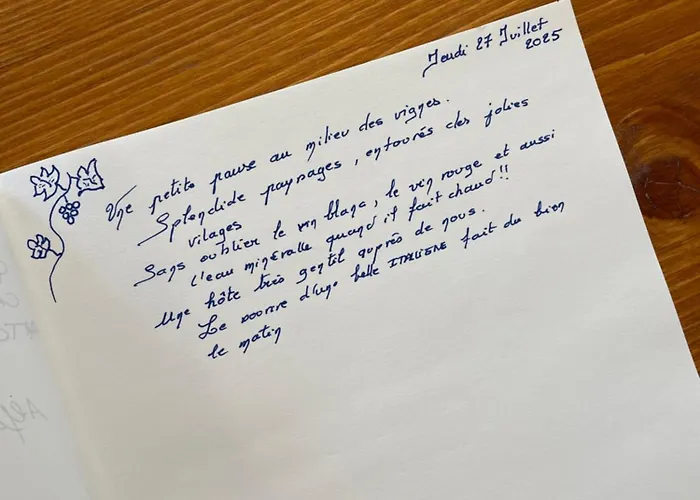 Jeudi 27 Juillet
2025
Une petite pause au milieu des vignes.
Splendide paysages, entourés des jolies
vilages
Sans oublier le vin blanc, le vin rouge et aussi
l'eau minéralle quand it fait chaud!!
Une hôte très gentil auprès de nous.
Le sourire d'une belle ITALIENE fait du bien
le matin